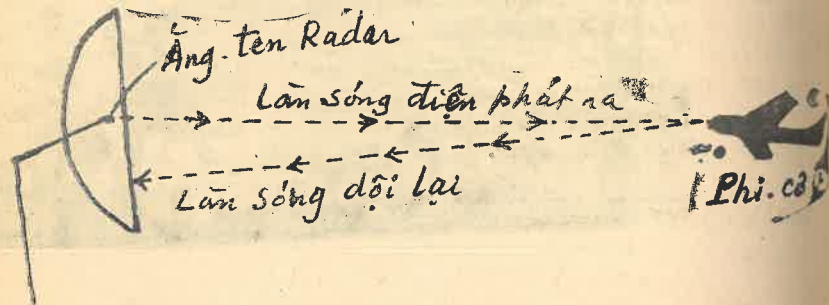 Ăng-ten Radar
Làn sóng điện phát ra
Làn sóng dội lại
Phi-cơ